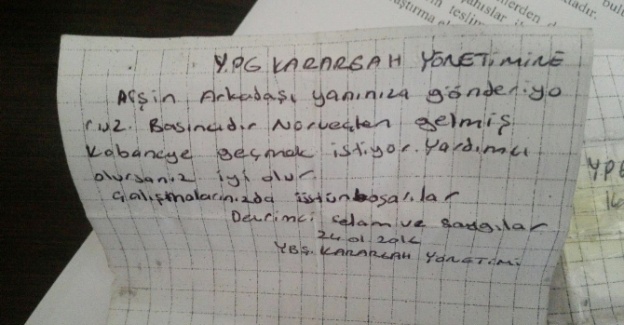 Y.PG KARARGAH YÖNETİMİNE
Arşin Arkadaşı yanınıza gönderiyo
ruz. Basıncıdır Norveçten gelmiş
Kobaneye geçmek istiyor. Yardımcı
olursanız iyi olur.
Çalışmalarınızda üstün başarılar
Devrimci selam ve saygılar
24.01.2016
YBŞ. KARARGAH YÖNETİMİ
YPG